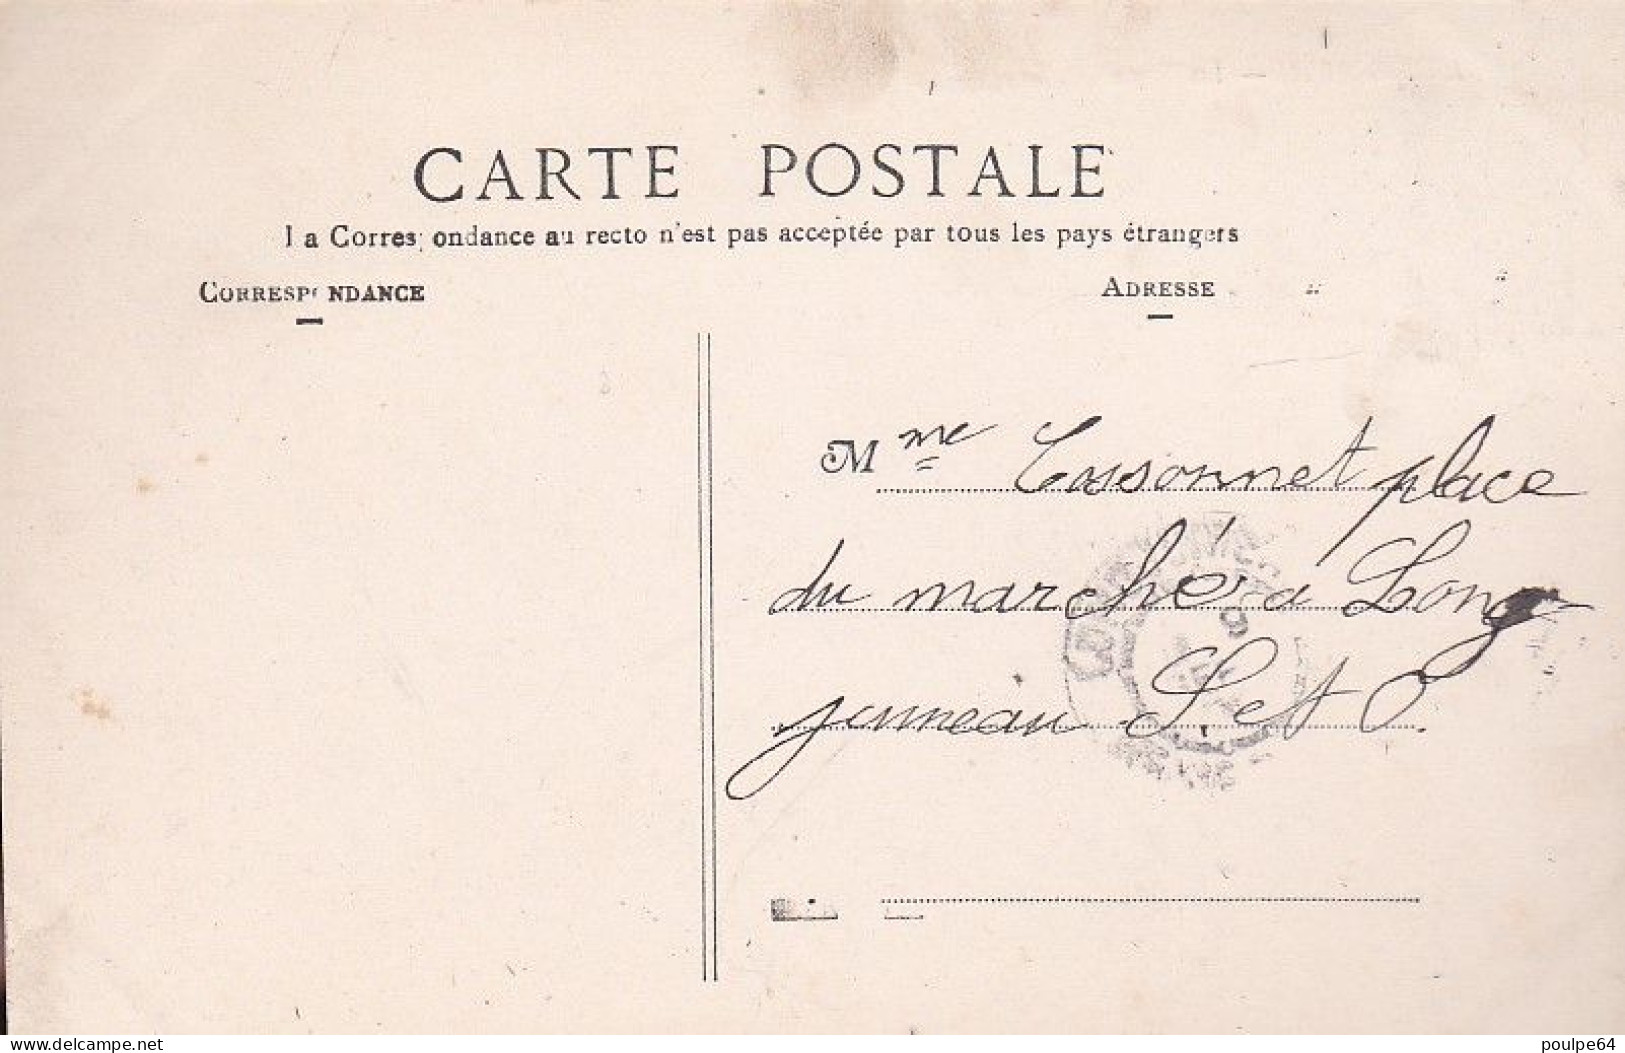 CARTE POSTALE
La Correspondance au recto n'est pas acceptée par tous les pays étrangers
CORRESPONDANCE
ADRESSE
Mme Cossonnet place
du marché à Long-
jumeau S. et O.
www.delcampe.net
poulpe64